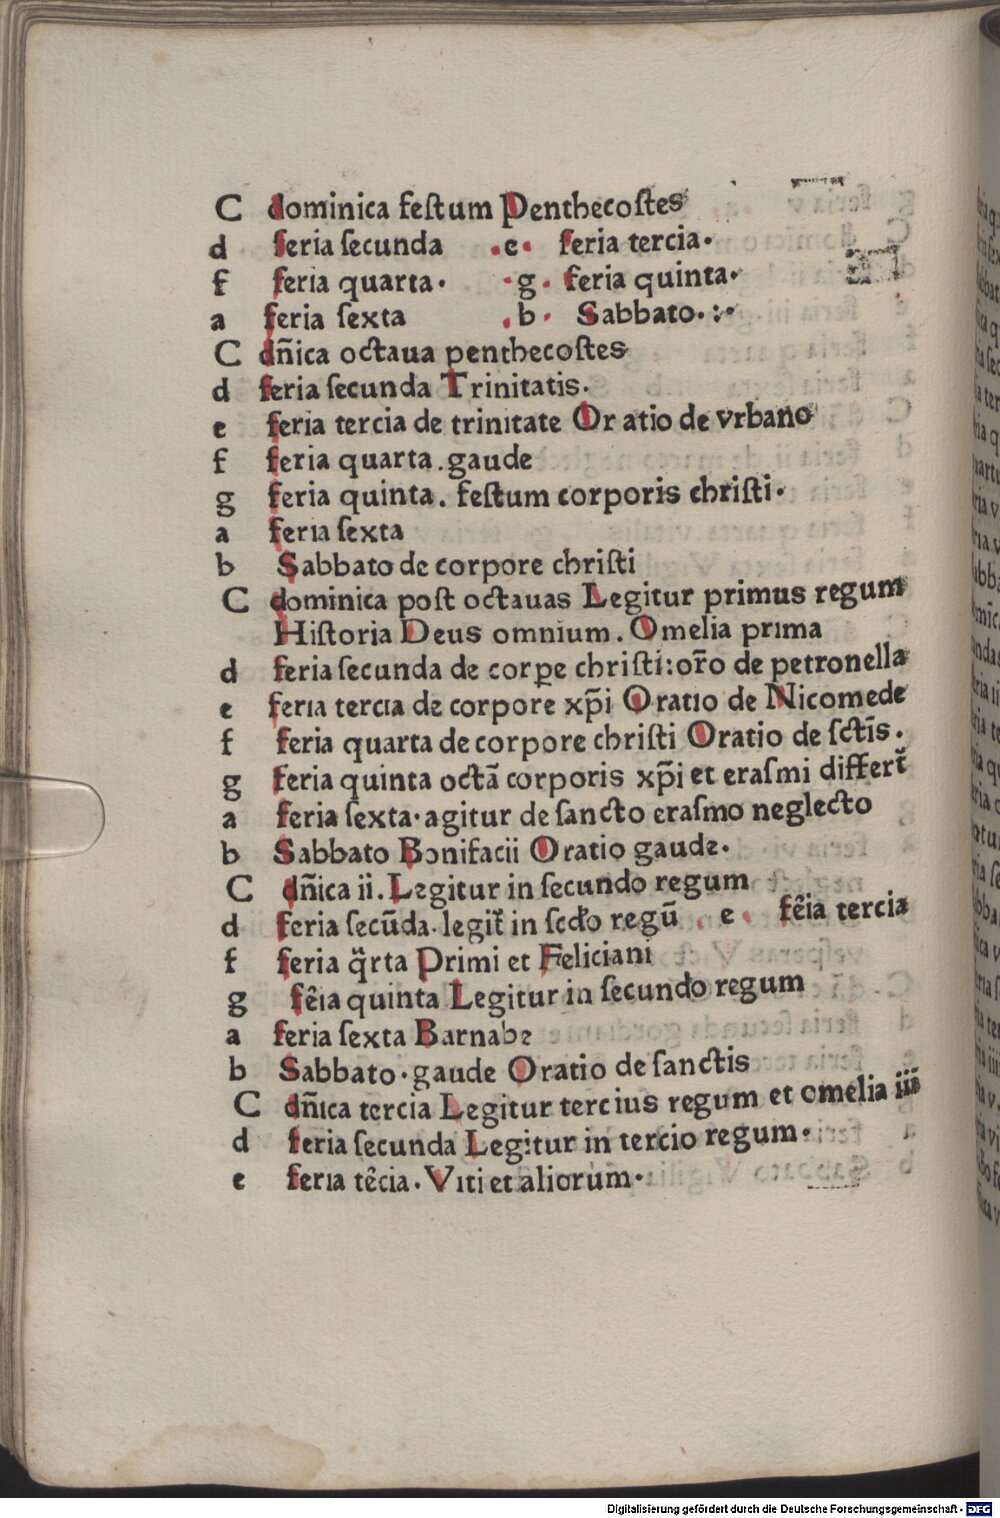 C dominica feſtum Penthecoſtes
d feria ſecunda .e. feria tercia.
f feria quarta. .g. feria quinta.
a feria ſexta .b. Sabbato.:.
C dn̄ica octaua penthecoſtes
d feria ſecunda Trinitatis.
e feria tercia de trinitate Or atio de vrbano
f feria quarta.gaude
g feria quinta. feſtum corporis chriſti.
a feria ſexta
b Sabbato de corpore chriſti
C dominica poſt octauas Legitur primus regum
Hiſtoria Deus omnium. Omelia prima
d feria ſecunda de corꝑe chriſti:or̄o de petronella
e feria tercia de corpore xp̄i Oratio de Nicomede
f feria quarta de corpore chriſti Oratio de ſctīs.
g feria quinta octā corporis xp̄i et eraſmi differt᷑
a feria ſexta.agitur de ſancto eraſmo neglecto
b Sabbato Bonifacii Oratio gaude.
C dn̄ica ii.Legitur in ſecundo regum
d feria ſecūda.legit᷑ in ſcd̓o regū . e . fêia tercia
f feria qͣrta Primi et Feliciani
g fêia quinta Legitur in ſecundo regum
a feria ſexta Barnabe
b Sabbato.gaude Oratio de ſanctis
C dn̄ica tercia Legitur tercius regum et omelia iii
d feria ſecunda Legitur in tercio regum.
e feria têcia. Viti et aliorum.
Digitalisierung gefördert durch die Deutsche Forschungsgemeinschaft - DFG